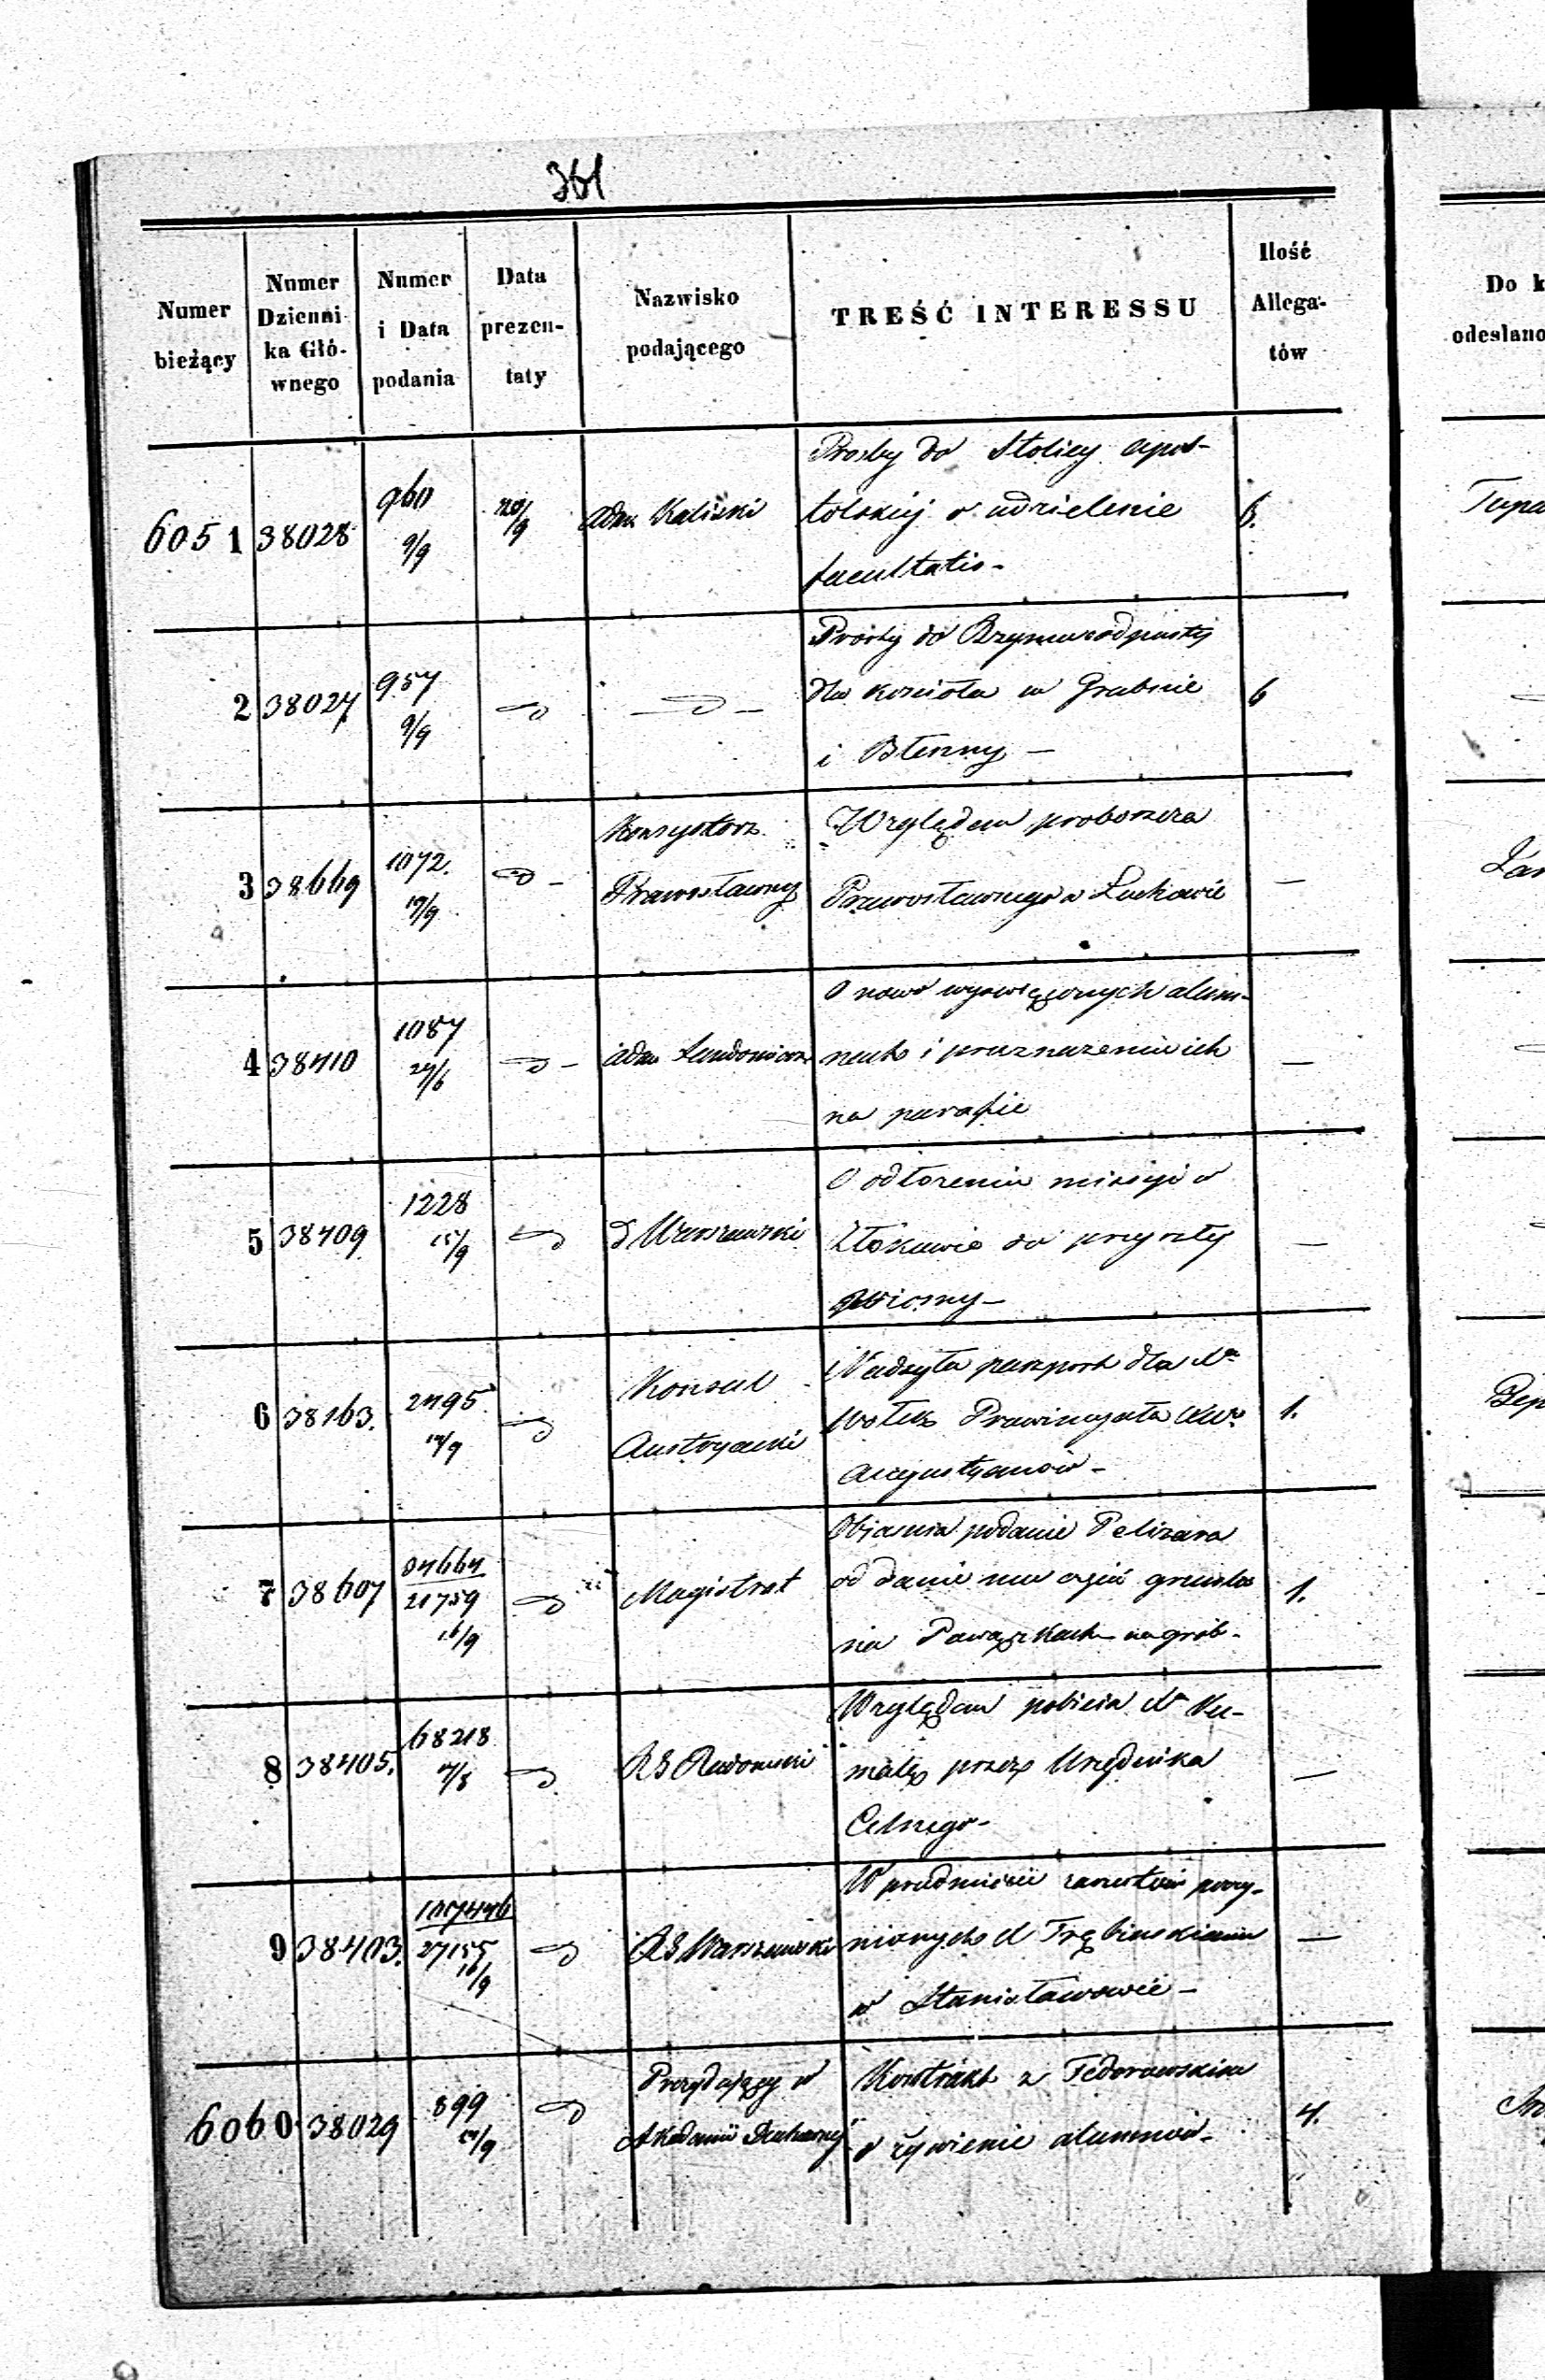 361
Numer bieżący
Numer Dzienni- ka Głó- wnego
Numer i Data podania
Data prezen- taty
Nazwisko podającego
TREŚĆ INTERESSU
Ilość Allega- tów
Do k
odesłano
6051 38028 960 9/9 20/9 Adm Kaliski
Prośby do Stolicy Apos-
tolskiej o udzielenie
facultatis -
6.
2 38027 957 9/9
Prośby do Rzymu o odpusty
dla kościoła w Grabnie
i Błenny -
6
3 38669 1072. 19/9
Konsystorz
Prawosławny
Względem proboszcza
Prawosławnego w Łuchowie
—
4 38410 1087 27/6 Adm Sandomiers
O nowo wyświęconych alum-
nach i przeznaczeniu ich
na parafie
—
5 38409 1228 15/9 d Warszawski
O odłożeniu missyi w
Złakowie do przyszłej
wiosny -
—
6 38163. 2495 14/9
Konsul
Austryacki
Nadsyła paszport dla X
Wołek Prowincyała XX
Augustyanów -
1.
7 38607 34664 21759 16/9 Magistrat
Objaśnia podanie Pelizaro
od danie mu części gruntu
na Powązkach na grób -
1.
8 38405. 68218 RG Radomski
Względem pobicia X Ku-
przez Urzędnika
Celnego -
—
9 38403. 27155 16/9 RG Warszawski
W przedmiocie zarzutów poczy-
nionych X Trębinskiemu
w Stanisławowie -
—
6060 38029 899
Prezydujący w
Akademii Duchownej
Kontrakt z Fedorowskim
o żywienie alumnów -
4.